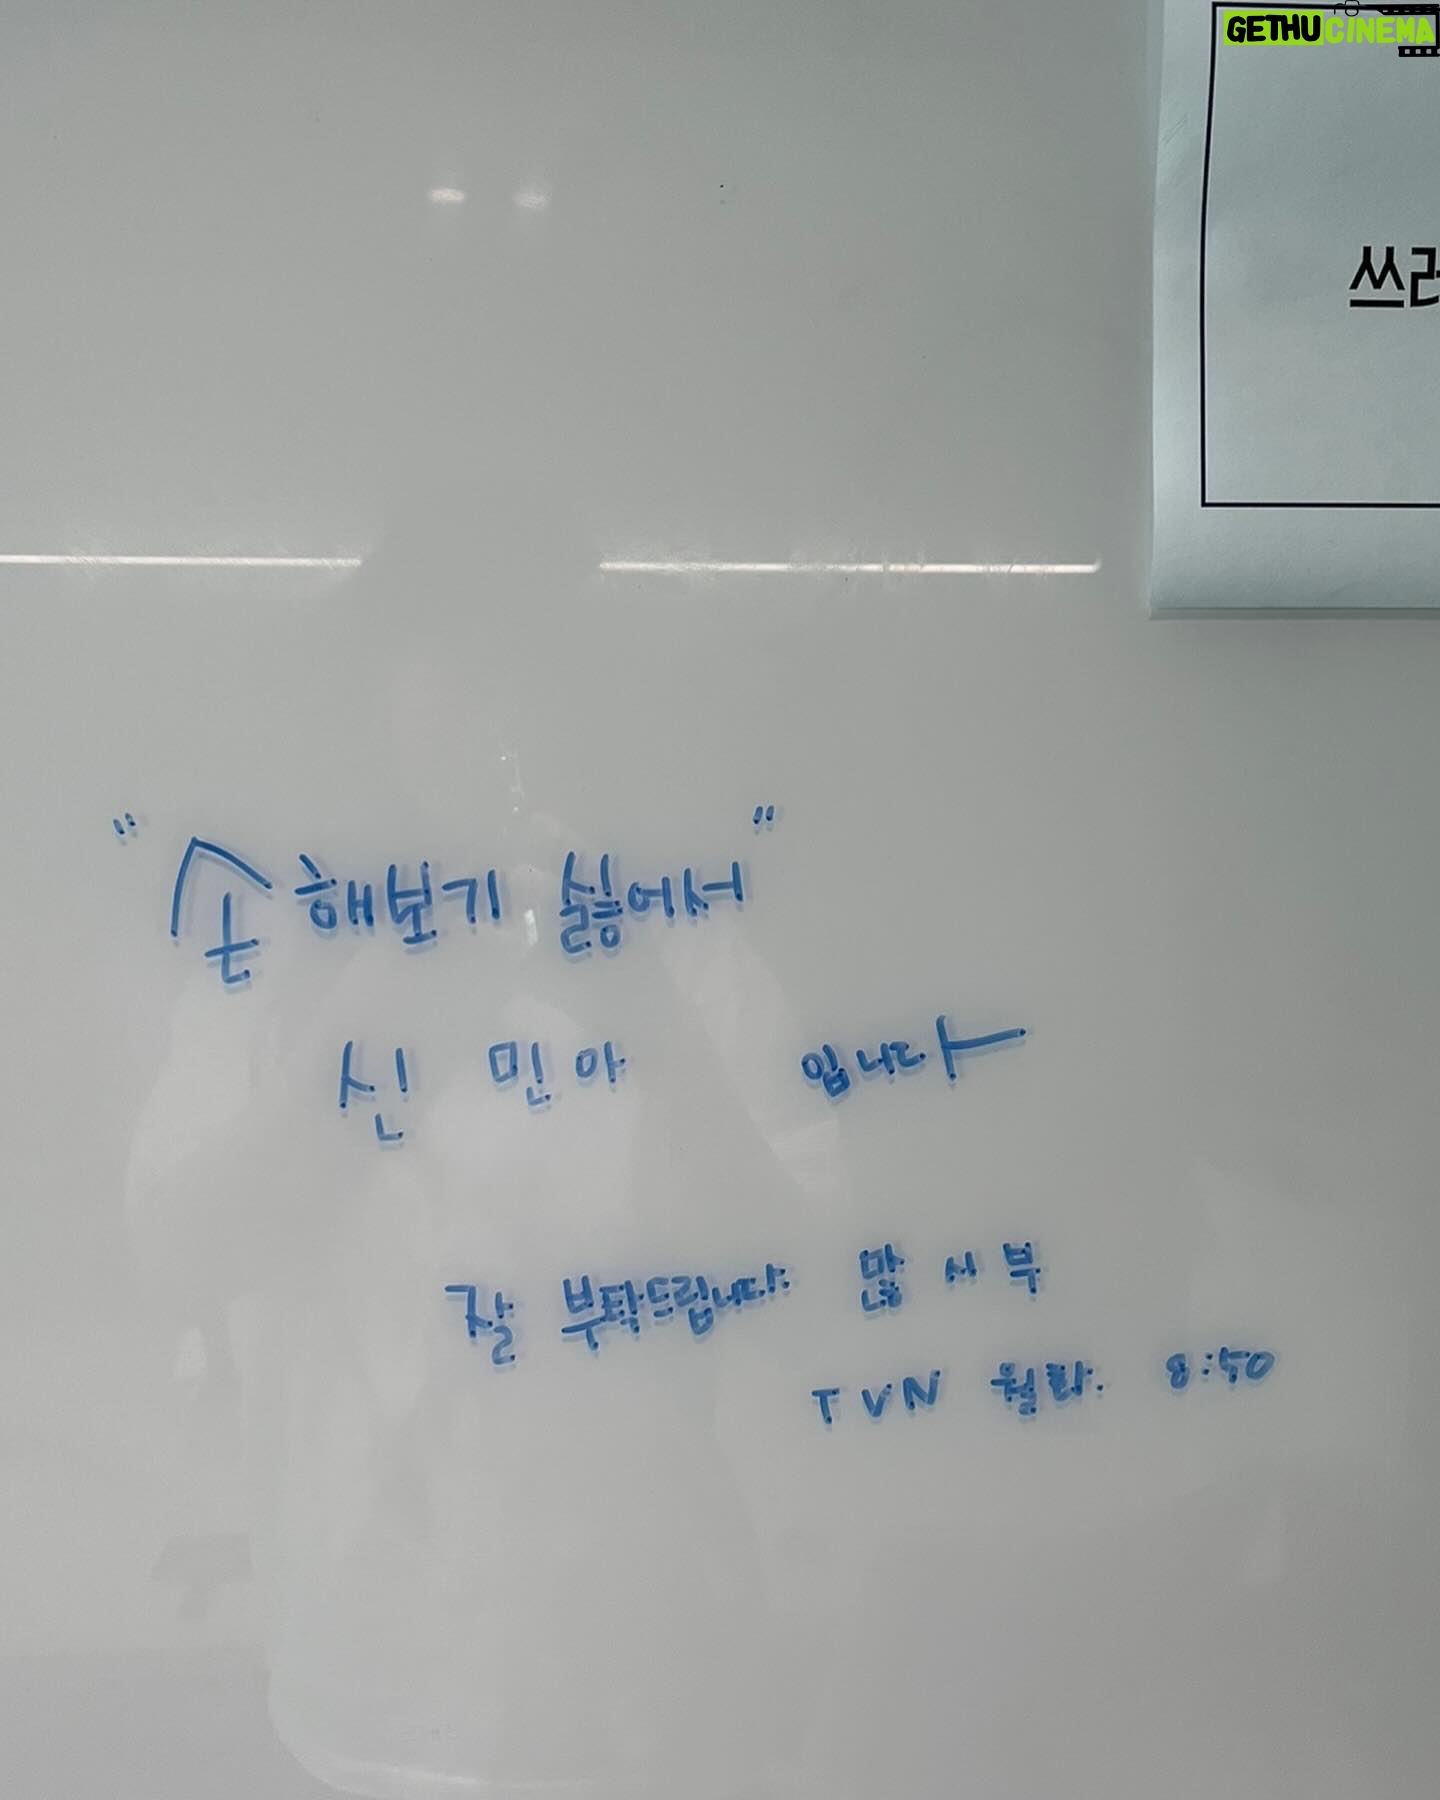 GETHUCINEMA
쓰레
"손해보기 싫어서"
신 민 아 입니다
잘 부탁드립니다. 많 시 부
TVN 월화. 8:50